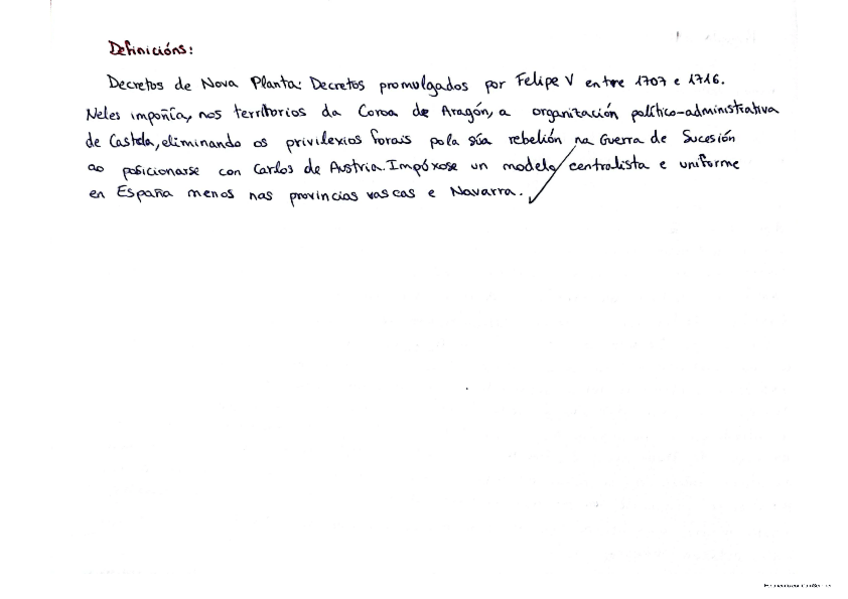 Definicións:
Decretos de Nova Planta: Decretos promulgados por Felipe V entre 1707 e 1716.
Neles impoñía, nos territorios da Coroa de Aragón, a organización político-administrativa
de Castela, eliminando os privilexios forais pola súa rebelión na Guerra de Sucesión
ao posicionarse con Carlos de Austria. Impóxose un modelo centralista e uniforme
en España menos nas provincias vascas e Navarra.